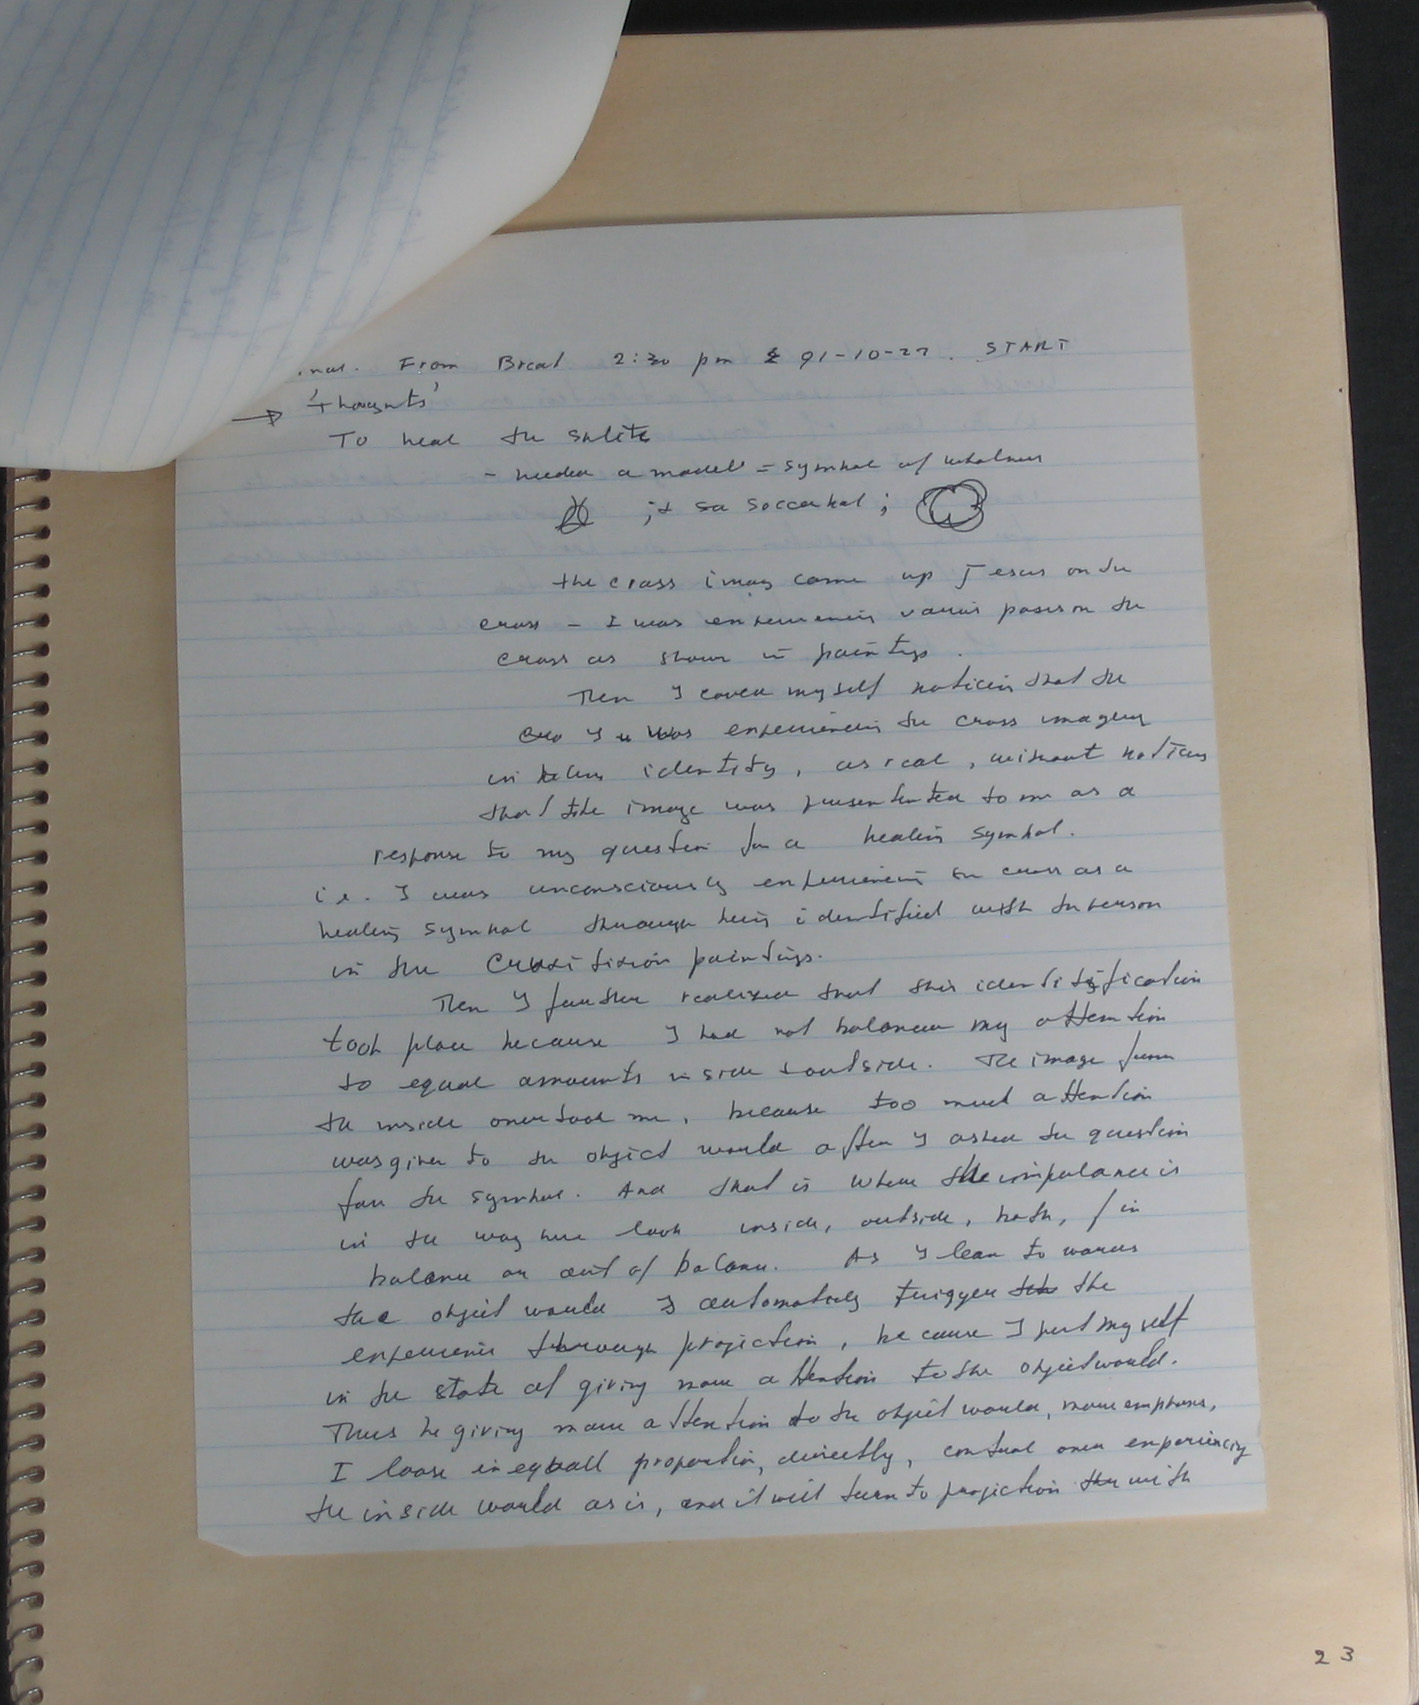 From 2:30 pm 91-10-27. START
'Thoughts'
To heal the
- needed a model = symbol of wholness
; ;
the cross imag came up Jesus on the
cross - I was experiencing various poses on the
cross as shown in paintings.
Then I myself noticing that the
I was experiencing the cross imagery
in identity, as real, without noticing
that the image was presented to me as a
response to my question for a healing symbol.
i.e. I was unconsciously experiencing the cross as a
healing symbol through being identified with the person
in the paintings.
Then I further realized that this identification
took place because I had not balanced my attention
to equal amounts inside + outside. The image from
the inside overtook me, because too much attention
was given to the object world after I asked the question
for the symbol. And that is where the imbalance is
in the way we look inside, outside, both, / in
balance or out of balance. As I lean towards
the object world I automaticly trigger the
experience through projection, because I put myself
in the state of giving more attention to the object world.
Thus be giving more attention to the object world, more emphasis,
I loose in equall proportion, directly, control over experiencing
the inside world as is, and it will turn to projection with
23